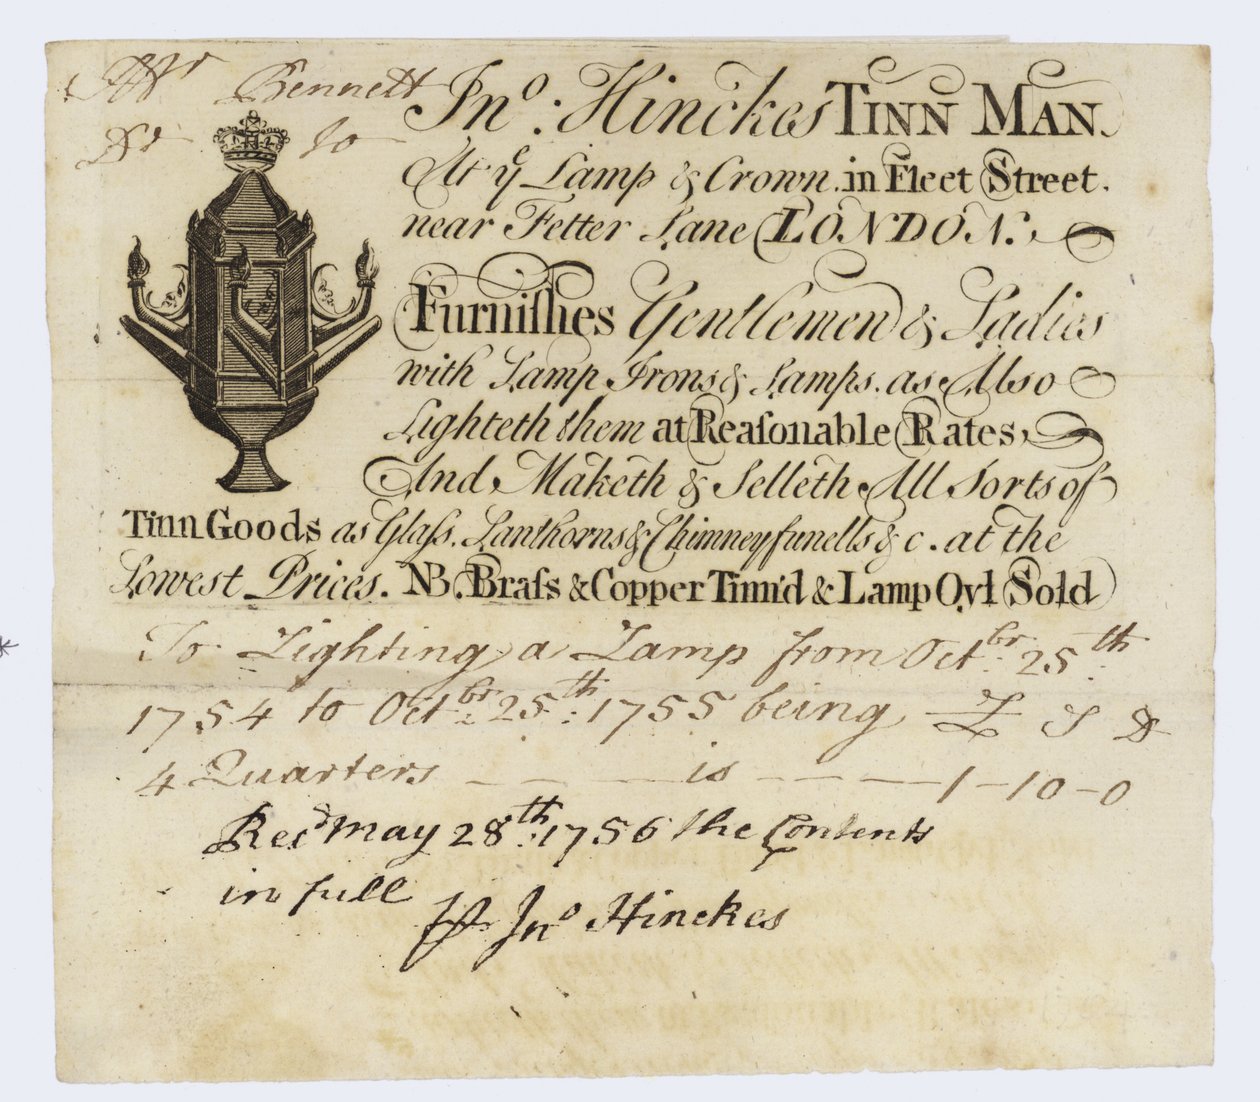 Mr Bennett
Dr to
Jno. Hinckes TINN MAN.
At ye Lamp & Crown. in Fleet Street.
near Fetter Lane LONDON.
Furniſhes Gentlemen & Ladies
with Lamp Irons & Lamps. as Also
Lighteth them at Reaſonable Rates,
And Maketh & Selleth All Sorts of
Tinn Goods as Glaſs. Lanthorns & Chimney funells & c. at the
Lowest Prices. NB. Braſs & Copper Tinn'd & Lamp Oyl Sold
To Lighting a Lamp from Octbr. 25th.
1754 to Octbr. 25th: 1755 being £ S D
4 Quarters — — — is — — — 1-10-0
Recd May 28th: 1756 the Contents
in full
Pr Jno Hinckes